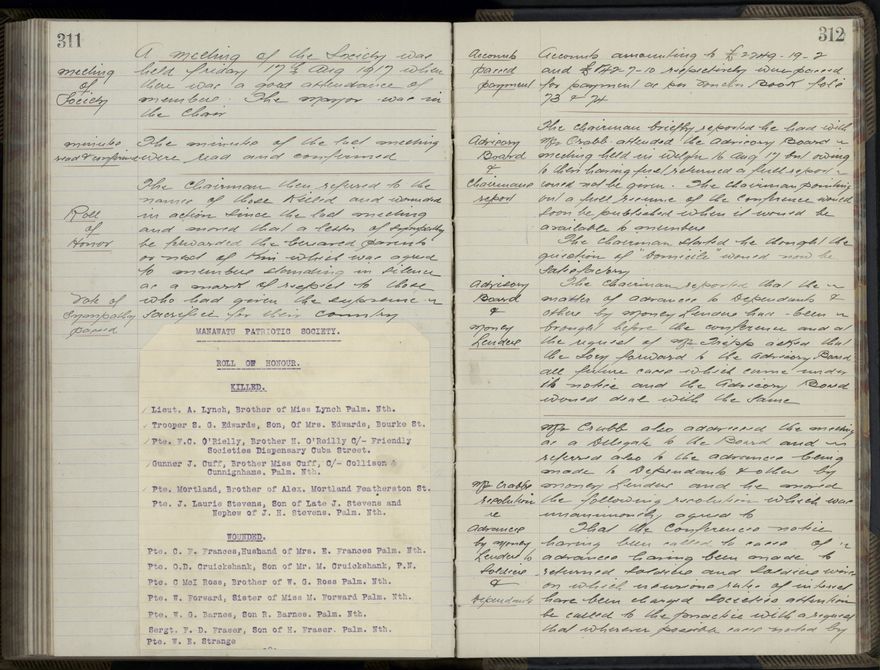 311
meeting
of
Society
A meeting of the Society was
held Friday 17th Aug 1917 when
there was a good attendance of
members. The Mayor was in
the Chair
minutes
read & confirmed
The minutes of the last meeting
were read and confirmed
Roll
of
Honor
The Chairman then referred to the
names of those killed and wounded
in action since the last meeting
and moved that a letter of sympathy
be forwarded the bereaved parents
or next of kin which was agreed
to members standing in silence
as a mark of respect to those
Vote of
Sympathy
passed
who had given the supreme
sacrifice for their Country
MANAWATU PATRIOTIC SOCIETY.
ROLL OF HONOUR.
KILLED.
Lieut. A. Lynch, Brother of Miss Lynch Palm. Nth.
Trooper S. G. Edwards, Son, Of Mrs. Edwards, Bourke St.
Pte. F.C. O'Rielly, Brother H. O'Reilly C/- Friendly
Societies Dispensary Cuba Street.
Gunner J. Cuff, Brother Miss Cuff, C/- Collison &
Cunnighame. Palm. Nth.
Pte. Mortland, Brother of Alex. Mortland Featherston St.
Pte. J. Laurie Stevens, Son of Late J. Stevens and
Nephew of J. H. Stevens. Palm. Nth.
WOUNDED.
Pte. C. F. Frances,Husband of Mrs. E. Frances Palm. Nth.
Pte. O.D. Cruickshank, Son of Mr. M. Cruickshank, P.N.
Pte. C McI Ross, Brother of W. G. Ross Palm. Nth.
Pte. W. Forward, Sister of Miss M. Forward Palm. Nth.
Pte. W. G. Barnes, Son R. Barnes. Palm. Nth.
Sergt. F. D. Fraser, Son of H. Fraser. Palm. Nth.
Pte. W. E. Strange
312
Accounts
passed
payment
Accounts amounting to £2749-19-2
and respectively were passed
for payment as per Book folio
73 & 74
Advisory
Board
&
Chairmans
report
The Chairman briefly reported he had with
Mr Crabb attended the Advisory Board
meeting held in Welgtn 16 Aug 17 but owing
to their having just returned a full report
could not be given. The Chairman pointing
out a full resume of the Conference would
soon be published when it would be
available to members
The Chairman stated he thought the
question of "Domicile" would now be
satisfactory
Advisory
Board
&
Money
Lenders
The Chairman reported that the
matter of advances to Dependants &
others by Money Lenders had been
brought before the conference and at
the request of Mr asked that
the Socy forward to the Advisory Board
all future cases which came under
its notice and the Advisory Board
would deal with the same
Mr Crabb also addressed the meeting
as a Delegate to the Board and
referred also to the advances being
made to Dependants & others by
Mr Crabbs
resolution
re
Advances
by Money
Lenders to
Soldiers
&
Dependants
money Lenders and he moved
the following resolution which was
unanimously agreed to
That the Conferences notice
having been called to cases of
advances having been made to
returned soldiers and soldiers wives
on which usurious rates of interest
have been charged Societies attention
be called to the practice with a request
that wherever possible cases noted by